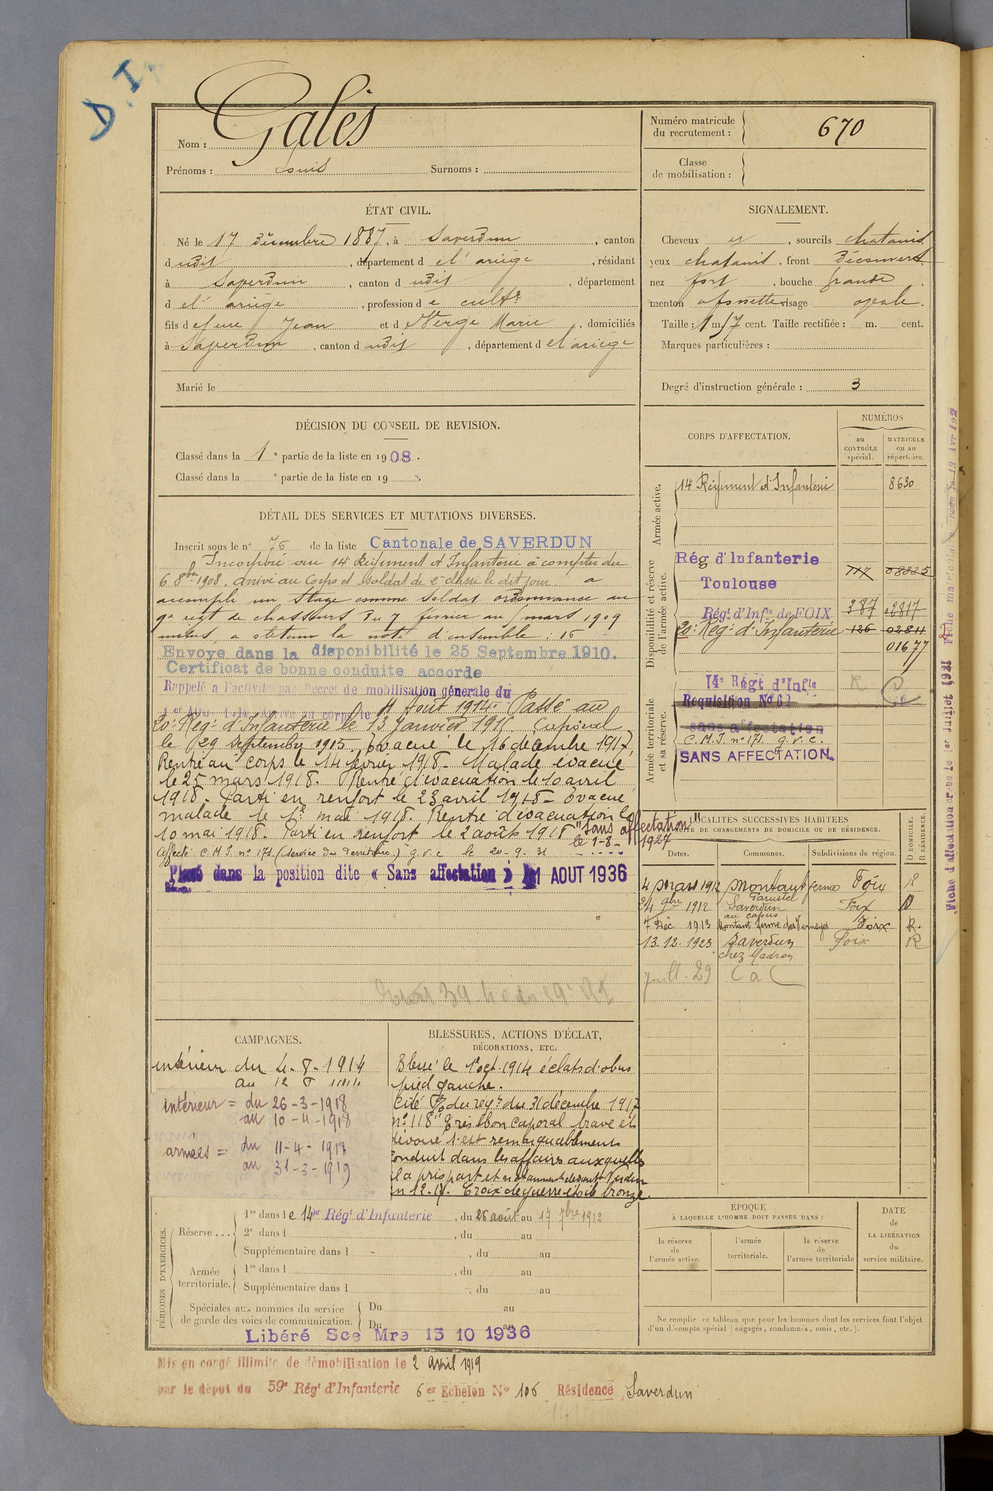 D. I.
Nom : Galès
Prénoms : Louis Surnoms :
Numéro matricule du recrutement : 670
Classe de mobilisation :
ÉTAT CIVIL.
Né le 17 décembre 1887, à Saverdun, canton
d udit, département d e l'ariège, résidant
à Saverdun, canton d udit, département
d e l'ariège, profession d e cultr
fils d e feu Jean et d Verge Marie, domiciliés
à Saverdun, canton d udit, département d e l'ariège
Marié le
SIGNALEMENT.
Cheveux et, sourcils chatains
yeux chatains, front découvert
nez fort, bouche grande
menton à fossette visage ovale.
Taille : 1 m. 7 cent. Taille rectifiée : m. cent.
Marques particulières :
Degré d'instruction générale : 3
DÉCISION DU CONSEIL DE REVISION.
Classé dans la 1e partie de la liste en 1908.
Classé dans la e partie de la liste en 19 .
DÉTAIL DES SERVICES ET MUTATIONS DIVERSES.
Inscrit sous le n° 76 de la liste Cantonale de SAVERDUN
Incorporé au 14 Régiment d'Infanterie à compter du
6 8bre 1908, arrivé au Corps et Soldat de 2e classe le dit jour a
accompli un stage comme soldat ordonnance au
9e régt de chasseurs du 7 février au mars 1909
a obtenu la note d'ensemble : 15
Envoyé dans la disponibilité le 25 Septembre 1910.
Certificat de bonne conduite accordé
Rappelé à l'activité par Décret de mobilisation générale du
1er AOU 1914. Arrivé au corps le 4 Août 1914. Passé au
20e Régt d'Infanterie le 13 Janvier 1915. Caporal
le 29 septembre 1915, évacué le 16 décembre 1917,
Rentré au corps le 14 février 1918. Malade évacué
le 25 mars 1918. Rentré d'évacuation le 10 avril
1918. Parti en renfort le 23 avril 1918. Evacué
malade le 1er mai 1918. Rentré d'évacuation le
10 mai 1918. Parti en renfort le 2 août 1918 "Sans affectation"
le 1-8-1927
Affecté C.M.I. n° 171 (Service du Territoire) g.v.c le 20-9-31
Placé dans la position dite « Sans affectation » 1 AOUT 1936
CORPS D'AFFECTATION.
NUMÉROS
au CONTRÔLE spécial.
MATRICULE ou au répertoire.
Armée active.
14 Régiment d'Infanterie 8630
Disponibilité et réserve de l'armée active.
Rég d'Infanterie
Toulouse 117 08225
Régt d'Infie de FOIX 387 02817
20e Régt d'Infanterie 126 02811
01677
Armée territoriale et sa réserve.
14e Régt d'Infie R
Requisition N° 62
sans affectation
C.M.I. n° 171. g.v.c.
SANS AFFECTATION.
LOCALITÉS SUCCESSIVES HABITÉES
PAR SUITE DE CHANGEMENTS DE DOMICILE OU DE RÉSIDENCE.
Dates. Communes. Subdivisions de région. D DOMICILE. R RÉSIDENCE.
4 mars 1912 Montaut ferme Foix R
24 9bre 1912 Saverdun Foix D
7 Déc. 1913 Montaut ferme Foix R.
13.12.1923 Saverdun Foix R
chez Madron
CAMPAGNES.
intérieur du 4-8-1914
intérieur = du 26-3-1918
au 10-4-1918
armées = du 11-4-1918
au 31-3-1919
BLESSURES, ACTIONS D'ÉCLAT,
DÉCORATIONS, ETC.
Blessé le 1er oct. 1914 éclats d'obus
pied gauche.
Cité O/ du régt du 31 décembre 1917
n° 118 "Très bon caporal brave et
dévoué s'est remarquablement
conduit dans les affaires auxquelles
il a pris part et notamment devant Verdun
en 12.17. Croix de guerre étoile bronze.
PÉRIODES D'EXERCICES.
Réserve ... 1re dans l e 14me Régt d'Infanterie, du 26 août au 17 7bre 1912
2e dans l , du au
Supplémentaire dans l , du au
Armée territoriale. 1re dans l , du au
Supplémentaire dans l , du au
Spéciales aux hommes du service de garde des voies de communication. Du au
Du au
Libéré Sce Mre 15 10 1936
ÉPOQUE
À LAQUELLE L'HOMME DOIT PASSER DANS :
la réserve de l'armée active.
l'armée territoriale.
la réserve de l'armée territoriale
DATE de LA LIBÉRATION du service militaire.
Ne remplir ce tableau que pour les hommes dont les services font l'objet
d'un décompte spécial (engagés, condamnés, omis, etc.).
Mis en congé illimité de démobilisation le 2 avril 1919
par le dépôt du 59e Régt d'Infanterie 6er Echelon N° 106 Résidence Saverdun